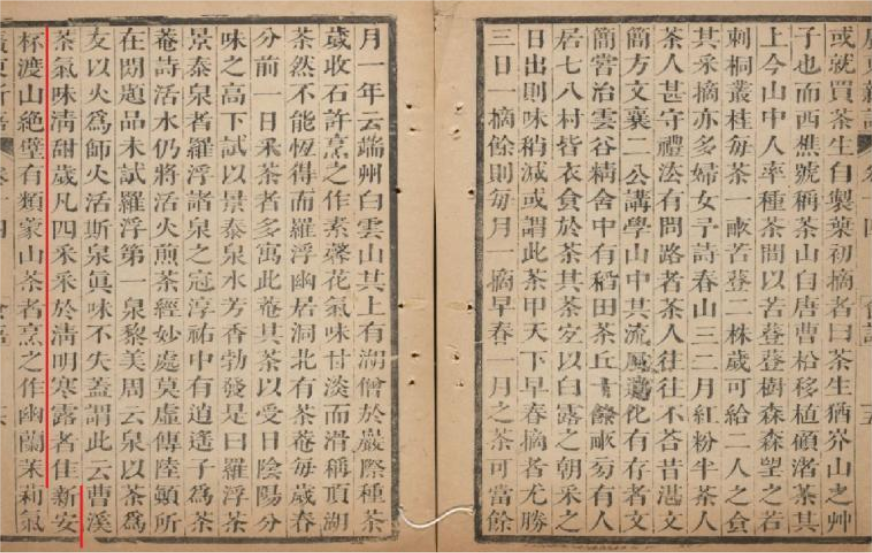 廣東新語 卷十四 食語 十五
或就買茶生自製葉初摘者曰茶生猶岕山之艸
子也而西樵號稱茶山自唐曹松移植顧渚茶其
上今山中人率種茶間以苦登登樹森森望之若
刺桐叢桂每茶一畝苦登二株歲可給二人之食
其采摘亦多婦女予詩春山三二月紅粉半茶人
茶人甚守禮法有問路者茶人往往不荅昔湛文
簡方文襄二公講學山中其流風遺化有存者文
簡嘗治雲谷精舍中有稻田茶丘十餘畝旁有人
居七八村皆衣食於茶其茶宜以白露之朝采之
日出則味稍減或謂此茶甲天下早春摘者尤勝
三日一摘餘則每月一摘早春一月之茶可當餘
月一年云端州白雲山其上有湖僧於巖際種茶
歲收石許烹之作素馨花氣味甘淡而滑稱頂湖
茶然不能恆得而羅浮幽居洞北有茶菴每歲春
分前一日采茶者多寓此菴其茶以受日陰陽分
味之高下試以景泰泉水芳香勃發是曰羅浮茶
景泰泉者羅浮諸泉之冠淳祐中有逍遙子爲茶
菴詩活水仍將活火煎茶經妙處莫虛傳陸顚所
在閱題品未試羅浮第一泉黎美周云泉以茶爲
友以火爲師火活斯泉眞味不失蓋謂此云曹溪
茶氣味淸甜歲凡四采采於淸明寒露者佳新安
杯渡山絶壁有類蒙山茶者烹之作幽蘭茉莉氣
廣東新語 卷十四 食語 十六